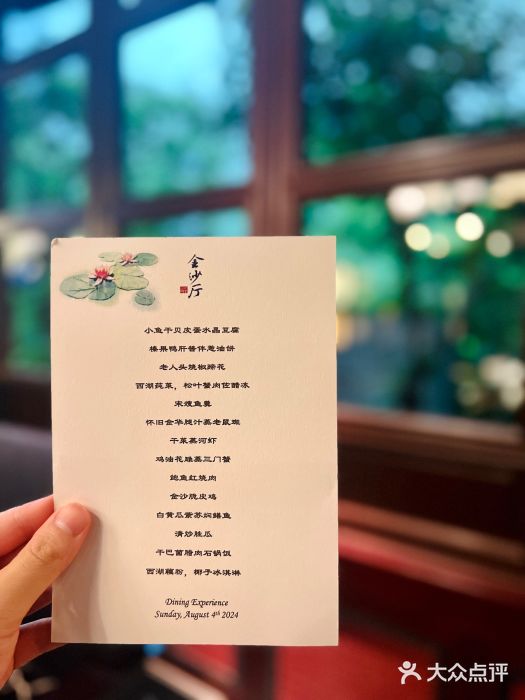 金沙厅
小鱼干贝皮蛋水晶豆腐
榛果鸭肝酱伴葱油饼
老人头烧椒蹄花
西湖莼菜，松叶蟹肉佐醋冻
宋嫂鱼羹
怀旧金华腿汁蒸老鼠斑
干菜蒸河虾
鸡油花雕蒸三门蟹
鲍鱼红烧肉
金沙脆皮鸡
白黄瓜紫苏焖鳝鱼
清炒丝瓜
干巴菌腊肉石锅饭
西湖藕粉，椰子冰淇淋
Dining Experience
Sunday, August 4th 2024
大众点评